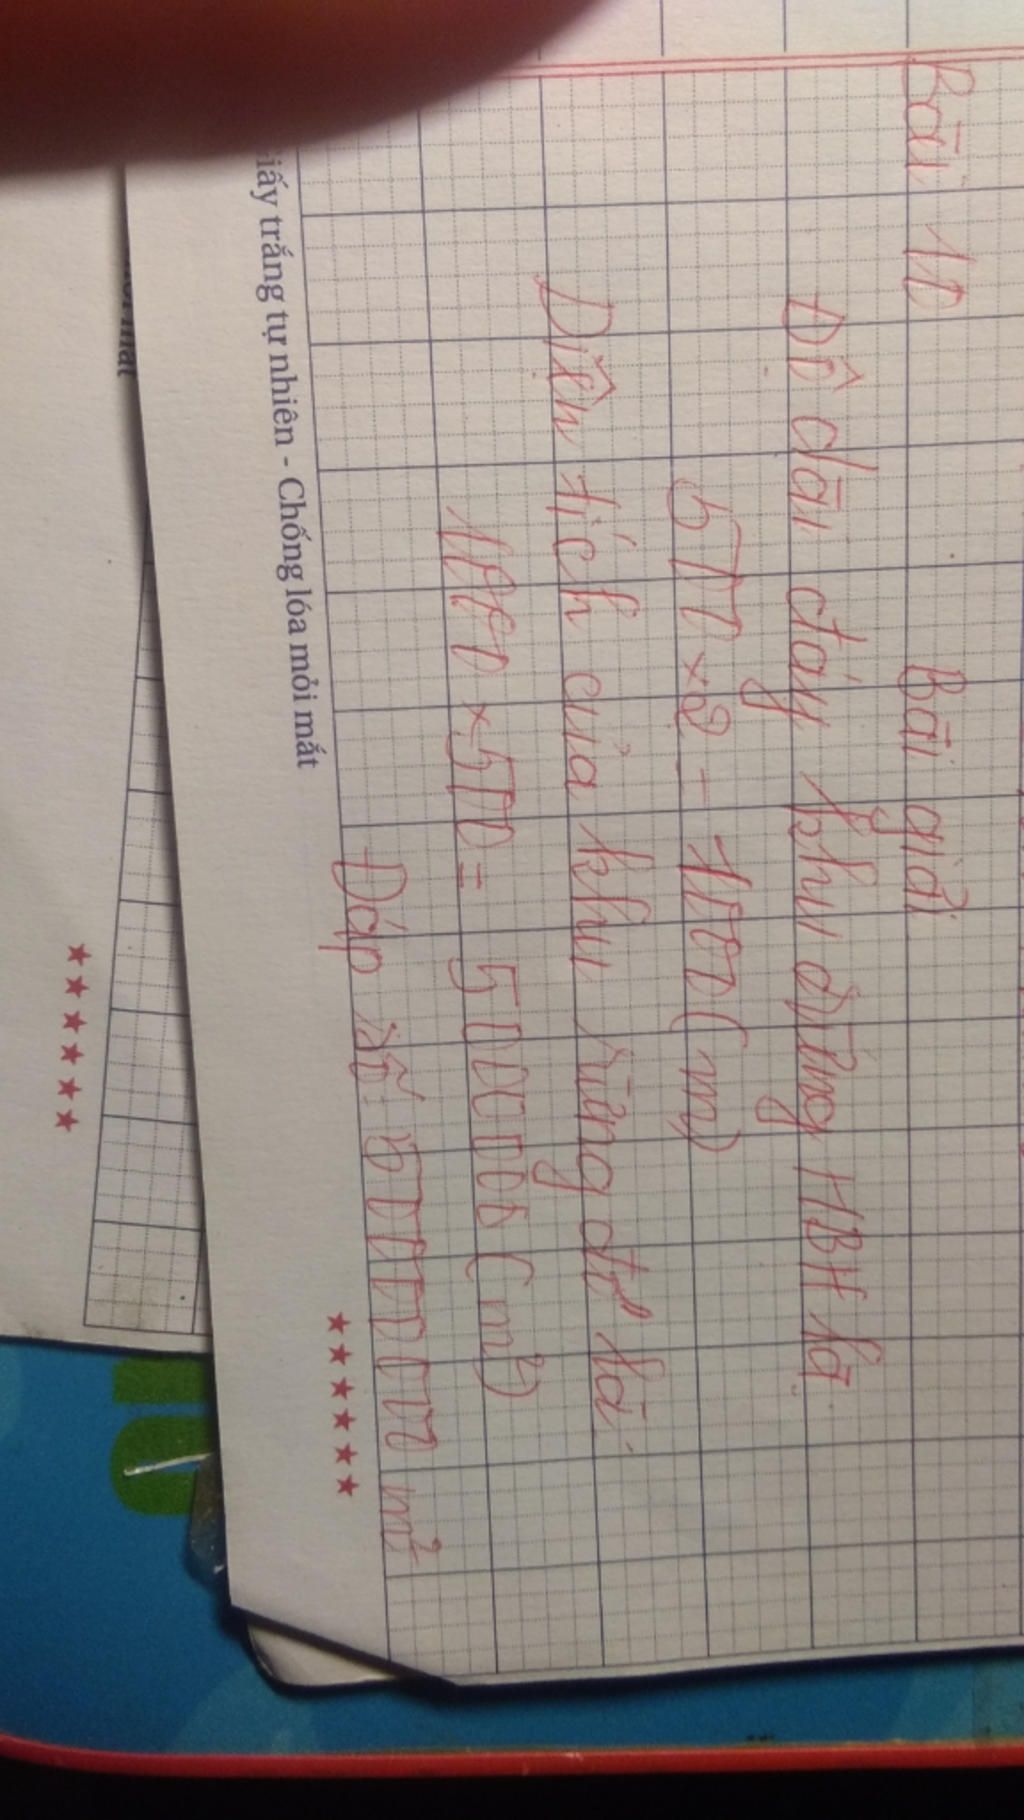 Bài 10
Bài giải
Độ dài đáy khu rừng HBH là:
500 x 2 = 1000 (m)
Diện tích của khu rừng đó là:
1000 x 500 = 500000 (m²)
Đáp số: 500000 m²
Giấy trắng tự nhiên - Chống lóa mỏi mắt